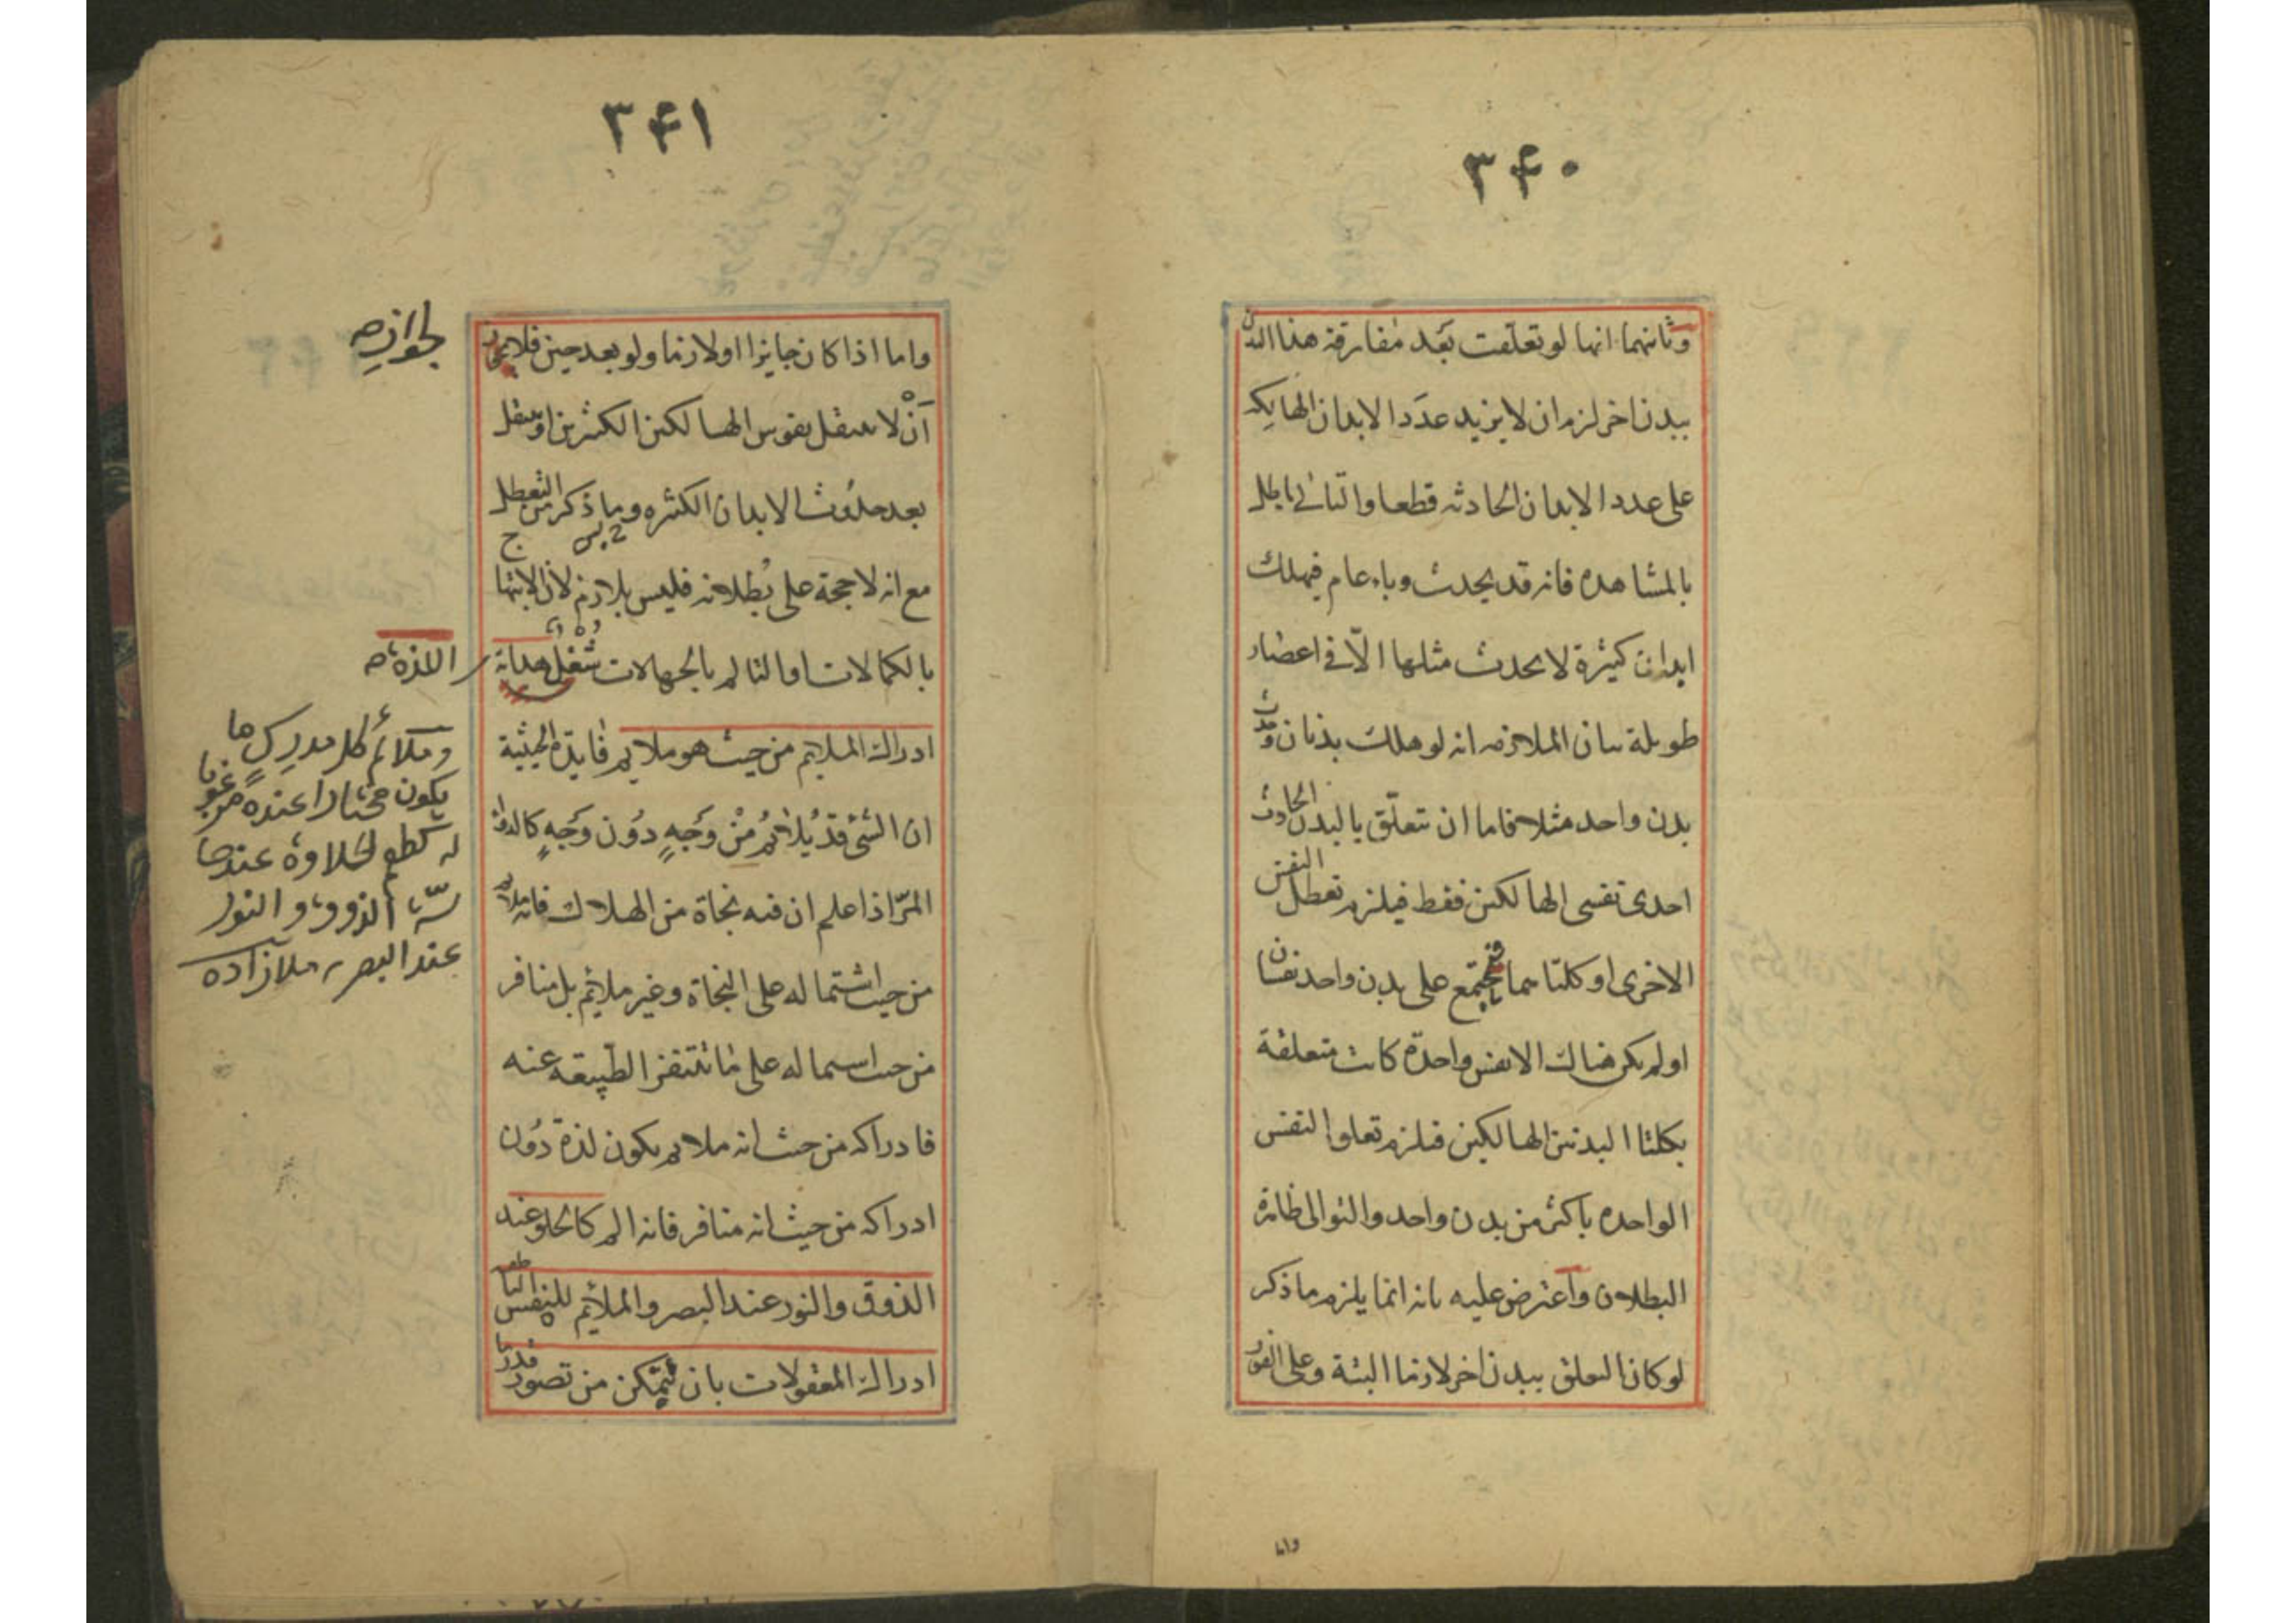 ٣۴٠
وثانيهما انها لو تعلقت بعد مفارقة هذا البدن
ببدن اخر لزم ان لا يزيد عدد الابدان الهالكة
على عدد الابدان الحادثه قطعا والتالى باطل
بالمشاهده فانه قد يحدث وباء عام فيهلك
ابدان كثيرة لا يحدث مثلها الّا فى اعصار
طويلة بيان الملازمه انه لو هلك بدنان وحدث
بدن واحد مثلا فاما ان تتعلّق بالبدن الحادث
احدى نفسى الهالكين فقط فيلزم تعطل النفس
الاخرى او كلتاهما فيجتمع على بدن واحد نفسان
او لم يكن هناك الا نفس واحدة كانت متعلقة
بكلتا البدنين الهالكين فيلزم تعلق النفس
الواحده باكثر من بدن واحد والتوالى ظاهرة
البطلان واعترض عليه بانه انما يلزم ما ذكر
لو كان التعلق ببدن اخر لازما البتة وعلى الفور
واما
٣۴١
واما اذا كان جايزا او لازما ولو بعد حين فلا يجوز
لجوازه
أن لا ينتقل نفوس الهالكين الكثيرين او ينتقل
بعد حدُوث الابدان الكثره وما ذكر من التعطل
مع انه لا حجة على بُطلانه فليس بلازم لان الابتهاج
بالكمالات او التالم بالجهالات شغل هداية
اللذة
ادراك الملايم من حيث هو ملايم فايدة الحيثية
ان الشئ قد يُلائمُ مِنْ وَجَهٍ دوُن وَجَهٍ كالدواء
المرّ اذا علم ان فيه نجاة من الهلاك فانه ملايم
من حيث اشتماله على النجاة وغير ملائم بل منافر
من حيث اشتماله على ما تتنفر الطبيعه عنه
فادراكه من حيث انه ملايم يكون لذة دوُن
ادراكه من حيث انه منافر فانه الم كالحلو عند
الذوق والنور عند البصر والملائم للنفس الناطقه
ادراك المعقولات بان تتمكن من تصور قدر ما
وملائم كل مدرِك ما
يكون مختارا عنده مرغوبا
له كطعم الحلاوة عند حا
سة الذوق، والنور
عند البصر ملازاده